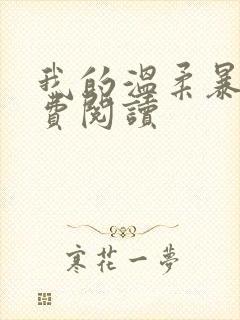 我的温柔暴
費閱讀
寒花一夢